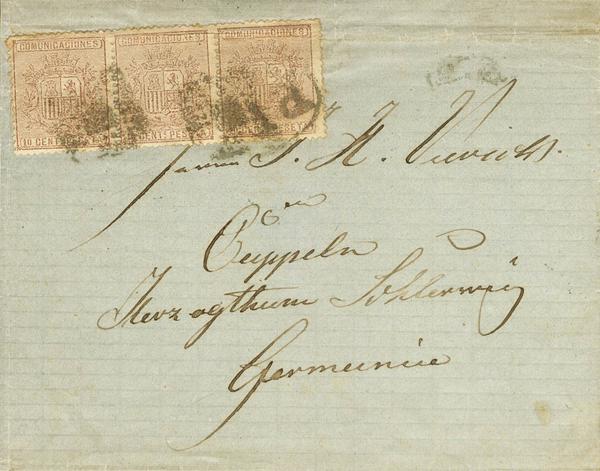 COMUNICACIONES COMUNICACIONES COMUNICACIONES
10 CENT PESETA
P.D.
Herrn J. H.
in
Cappeln
Herzogthum Schleswig
Germanie